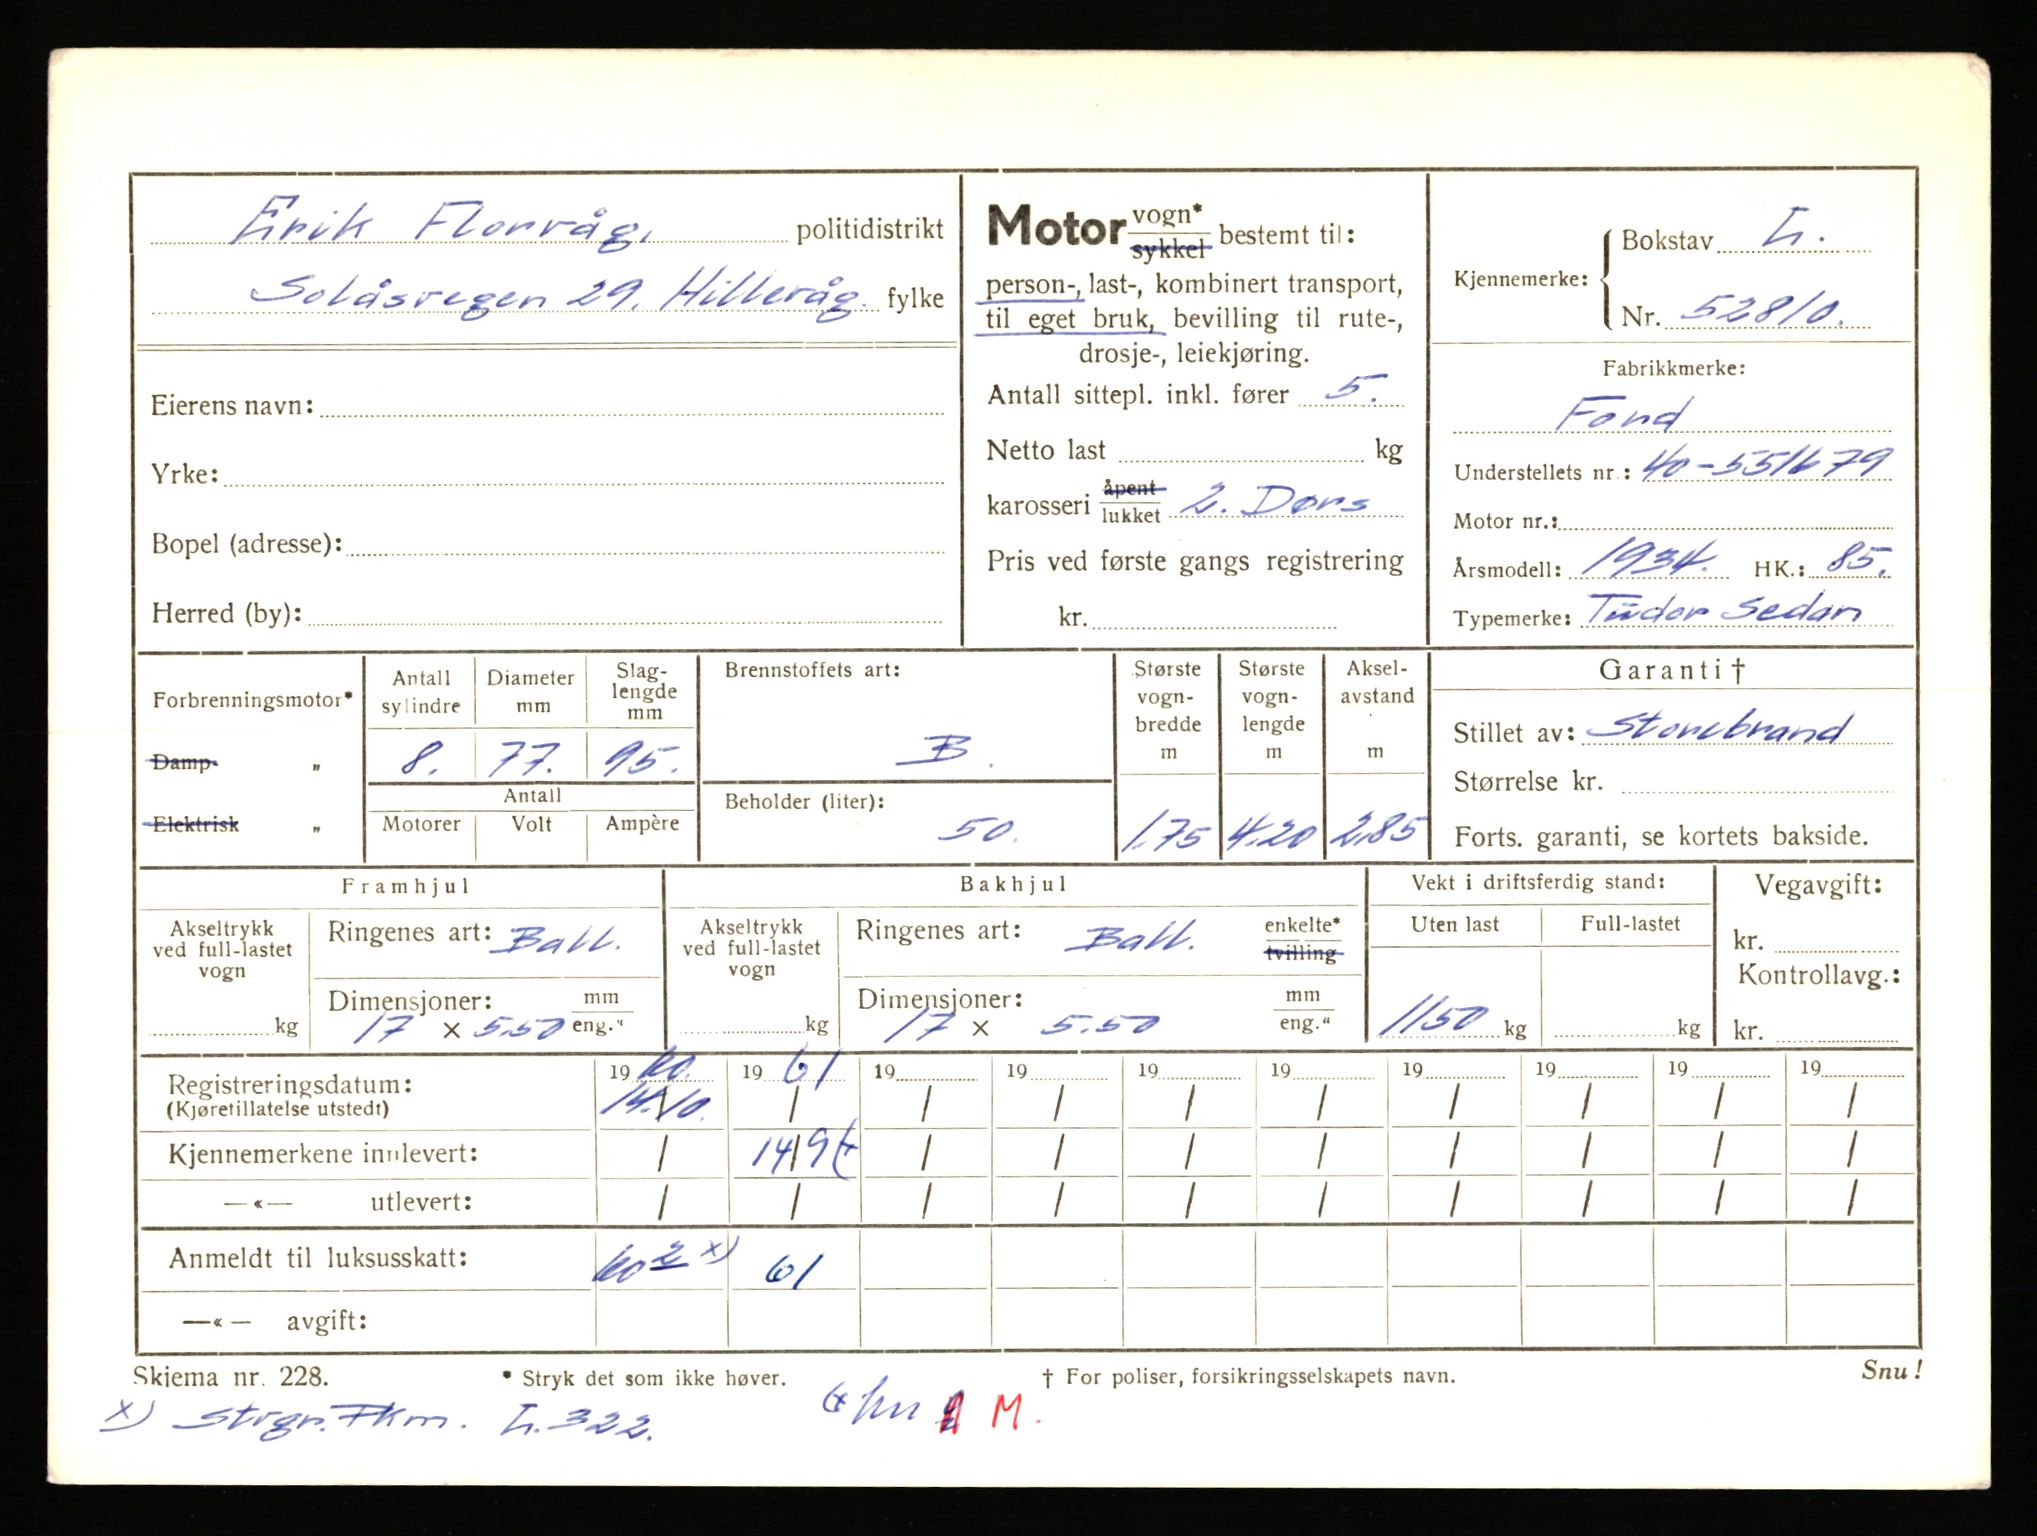 Erik Florvåg, politidistrikt
Solåsvegen 29. Hillevåg. fylke
Eierens navn:
Yrke:
Bopel (adresse):
Herred (by):
Motor vogn* sykkel bestemt til:
person-, last-, kombinert transport,
til eget bruk, bevilling til rute-,
drosje-, leiekjøring.
Antall sittepl. inkl. fører 5.
Netto last kg
karosseri åpent lukket 2. Dørs
Pris ved første gangs registrering
kr.
Kjennemerke: Bokstav L.
Nr. 52810.
Fabrikkmerke:
Ford
Understellets nr.: 40-551679
Motor nr.:
Årsmodell: 1934. HK.: 85.
Typemerke: Tudor Sedan
Forbrenningsmotor*
Damp- „
Elektrisk „
Antall sylindre 8.
Diameter mm 77.
Slaglengde mm 95.
Antall
Motorer Volt Ampère
Brennstoffets art:
B.
Beholder (liter):
50.
Største vognbredde m 1.75
Største vognlengde m 4.20
Akselavstand m 2.85
Garanti †
Stillet av: Storebrand
Størrelse kr.
Forts. garanti, se kortets bakside.
Framhjul
Akseltrykk ved full-lastet vogn kg
Ringenes art: Ball.
Dimensjoner: 17 × 5.50 mm eng."
Bakhjul
Akseltrykk ved full-lastet vogn kg
Ringenes art: Ball. enkelte* tvilling
Dimensjoner: 17 × 5.50 mm eng."
Vekt i driftsferdig stand:
Uten last Full-lastet
1150 kg kg
Vegavgift:
kr.
Kontrollavg.:
kr.
Registreringsdatum: 19 60. 19 61 19 19 19 19 19 19 19 19
(Kjøretillatelse utstedt) 14/10. / / / / / / / / /
Kjennemerkene innlevert: / 14/9 / / / / / / / /
—«— utlevert: / / / / / / / / / /
Anmeldt til luksusskatt: 60 2 x) 61
—«— avgift:
Skjema nr. 228. * Stryk det som ikke høver. † For poliser, forsikringsselskapets navn. Snu!
x) L. 322. M.